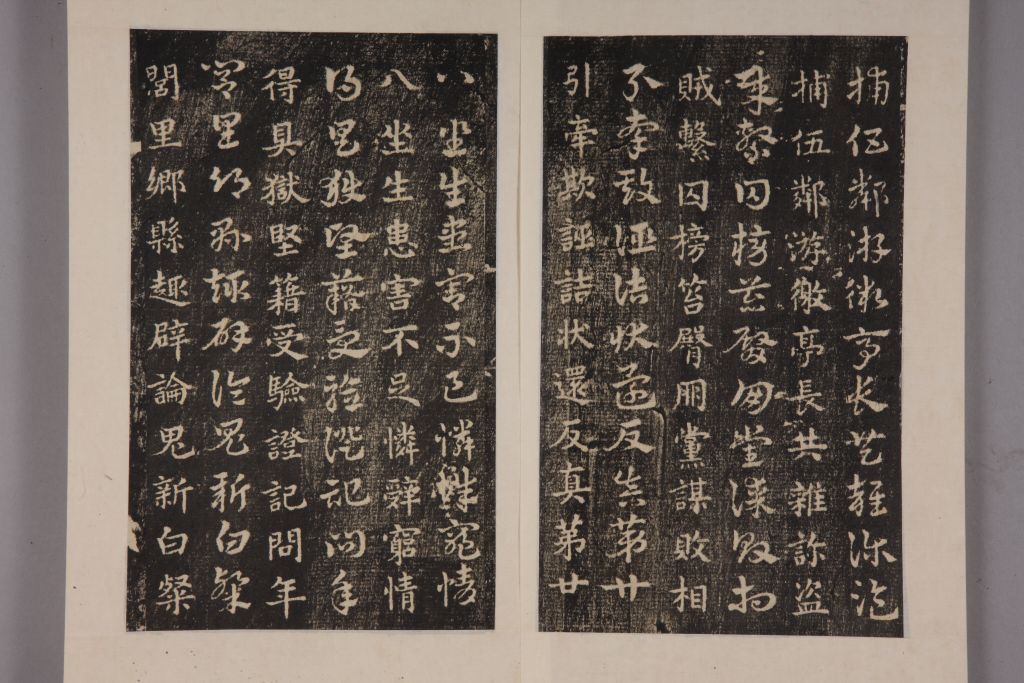 捕伍鄰游徼亭長共雜診盜
捕伍鄰游徼亭長共雜診盜
賊繫囚榜笞臀朋黨謀敗相
賊繫囚榜笞臀朋黨謀敗相
引牽欺誣詰狀還反真第廿
引牽欺誣詰狀還反真第廿
八坐生患害不足憐辭窮情
八坐生患害不足憐辭窮情
得具獄堅籍受驗證記問年
得具獄堅籍受驗證記問年
閭里鄉縣趣辟論鬼新白粲
閭里鄉縣趣辟論鬼新白粲